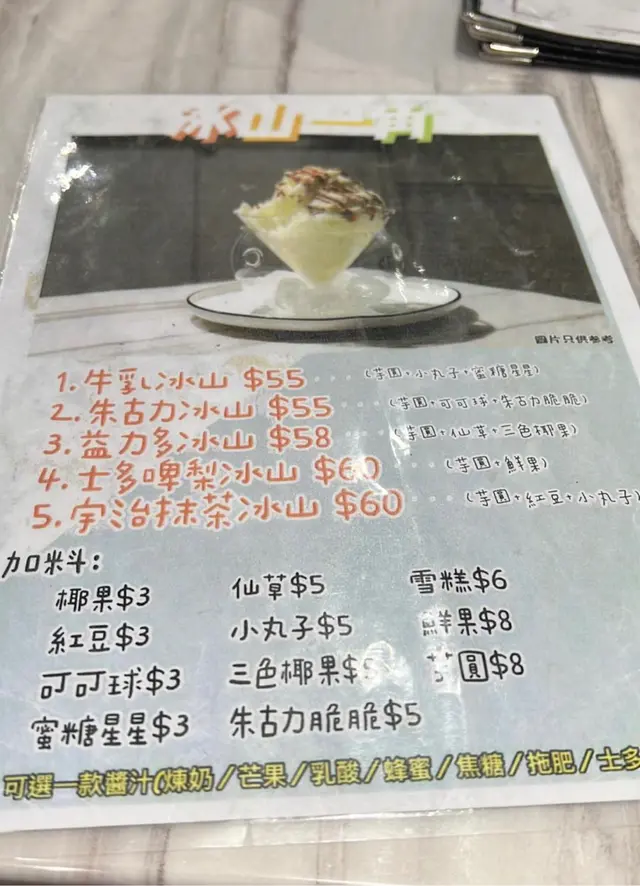 冰山一角
圖片只供參考
1. 牛乳冰山 $55 (芋圓+小丸子+蜜糖星星)
2. 朱古力冰山 $55 (芋圓+可可球+朱古力脆脆)
3. 益力多冰山 $58 (芋圓+仙草+三色椰果)
4. 士多啤梨冰山 $60 (芋圓+鮮果)
5. 宇治抹茶冰山 $60 (芋圓+紅豆+小丸子)
加料:
椰果$3 仙草$5 雪糕$6
紅豆$3 小丸子$5 鮮果$8
可可球$3 三色椰果$5 芋圓$8
蜜糖星星$3 朱古力脆脆$5
可選一款醬汁(煉奶/芒果/乳酸/蜂蜜/焦糖/拖肥/士多